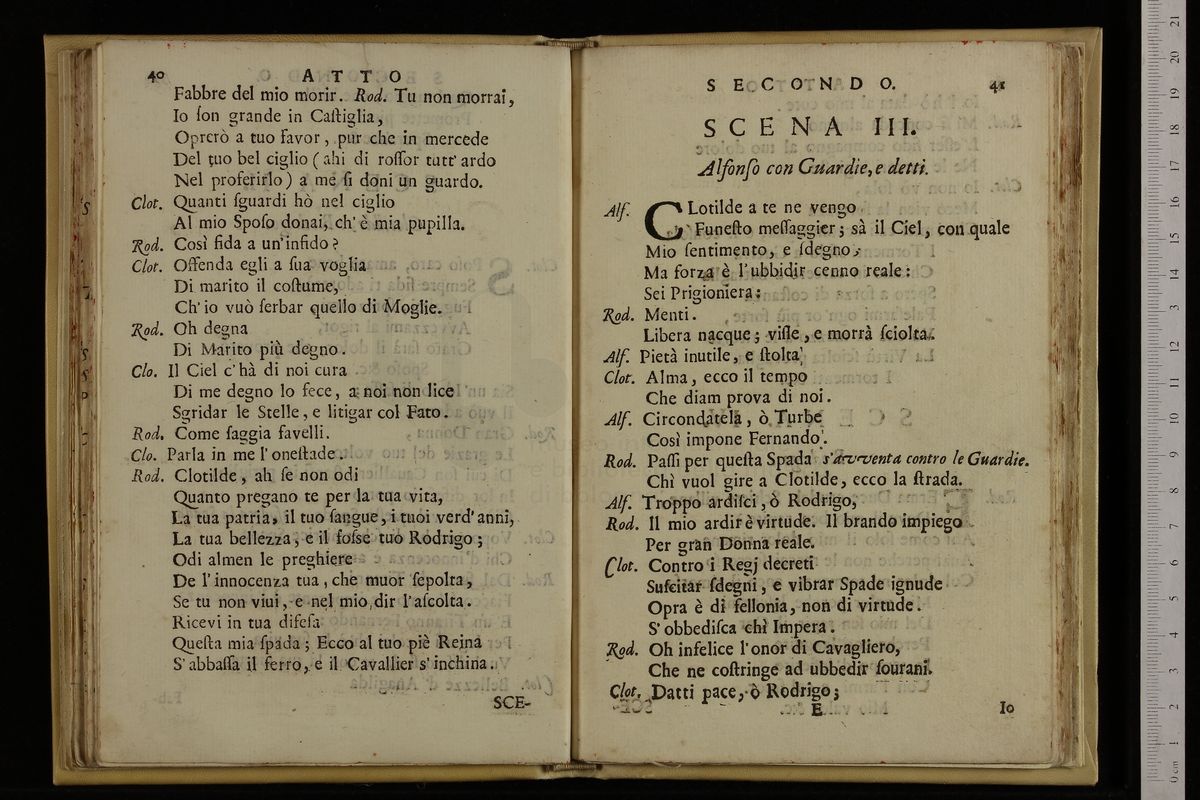 40 ATTO
Fabbre del mio morir. Rod. Tu non morrai,
Io ſon grande in Caſtiglia,
Oprerò a tuo favor, pur che in mercede
Del tuo bel ciglio (ahi di roſſor tutt' ardo
Nel proferirlo) a me ſi doni un guardo.
Clot. Quanti ſguardi hò nel ciglio
Al mio Spoſo donai, ch' è mia pupilla.
Rod. Così fida a un' infido?
Clot. Offenda egli a ſua voglia
Di marito il coſtume,
Ch' io vuò ſerbar quello di Moglie.
Rod. Oh degna
Di Marito più degno.
Clo. Il Ciel c' hà di noi cura
Di me degno lo fece, a noi non lice
Sgridar le Stelle, e litigar col Fato.
Rod. Come ſaggia favelli.
Clo. Parla in me l' oneſtade.
Rod. Clotilde, ah ſe non odi
Quanto pregano te per la tua vita,
La tua patria, il tuo ſangue, i tuoi verd' anni,
La tua bellezza, e il foſse tuo Rodrigo;
Odi almen le preghiere
De l' innocenza tua, che muor ſepolta,
Se tu non viui, e nel mio dir l' aſcolta.
Ricevi in tua difeſa
Queſta mia ſpada; Ecco al tuo piè Reina
S' abbaſſa il ferro, e il Cavallier s' inchina.
SCE-
SECONDO. 41
SCENA III.
Alfonſo con Guardie, e detti.
Alf. CLotilde a te ne vengo
Funeſto meſſaggier; sà il Ciel, con quale
Mio ſentimento, e ſdegno;
Ma forza è l' ubbidir cenno reale:
Sei Prigioniera:
Rod. Menti.
Libera nacque; viſſe, e morrà ſciolta.
Alf. Pietà inutile, e ſtolta.
Clot. Alma, ecco il tempo
Che diam prova di noi.
Alf. Circondatela, ò Turbe
Così impone Fernando.
Rod. Paſſi per queſta Spada s'avventa contro le Guardie.
Chì vuol gire a Clotilde, ecco la ſtrada.
Alf. Troppo ardiſci, ò Rodrigo,
Rod. Il mio ardir è virtude. Il brando impiego
Per gran Donna reale.
Clot. Contro i Regj decreti
Suſcitar ſdegni, e vibrar Spade ignude
Opra è di fellonia, non di virtude.
S' obbediſca chì Impera.
Rod. Oh infelice l' onor di Cavagliero,
Che ne coſtringe ad ubbedir ſourani.
Clot. Datti pace, ò Rodrigo;
E Io
0 cm 1 2 3 4 5 6 7 8 9 10 11 12 13 14 15 16 17 18 19 20 21